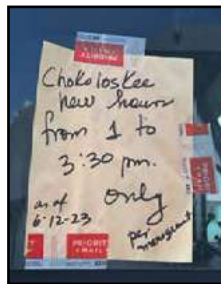 PRIORITY
MAIL
Chokoloskee
new hours
from 1 to
3:30 pm.
only
as of
6-12-23
per
PRIORIT
MAIL